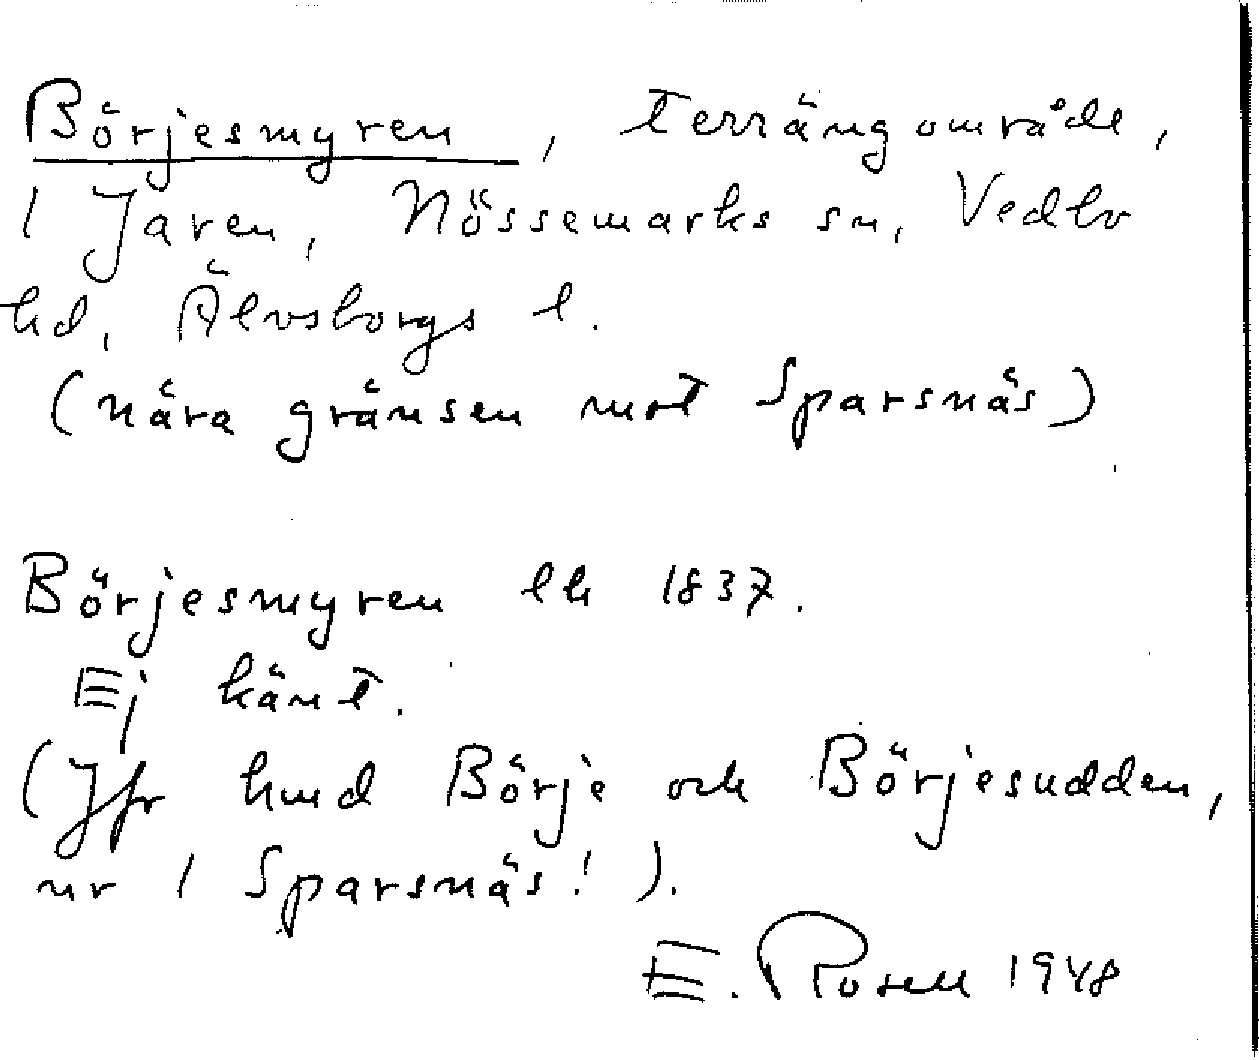 Börjesmyren, terrängområde,
1 Jaren, Nössemarks sn, Vedbo
hd, Älvsborgs l.
(nära gränsen mot Sparsnäs)
Börjesmyren lh 1837.
Ej känt.
(Jfr hmd Börje och Börjesudden,
nr 1 Sparsnäs!).
E. Rosell 1948